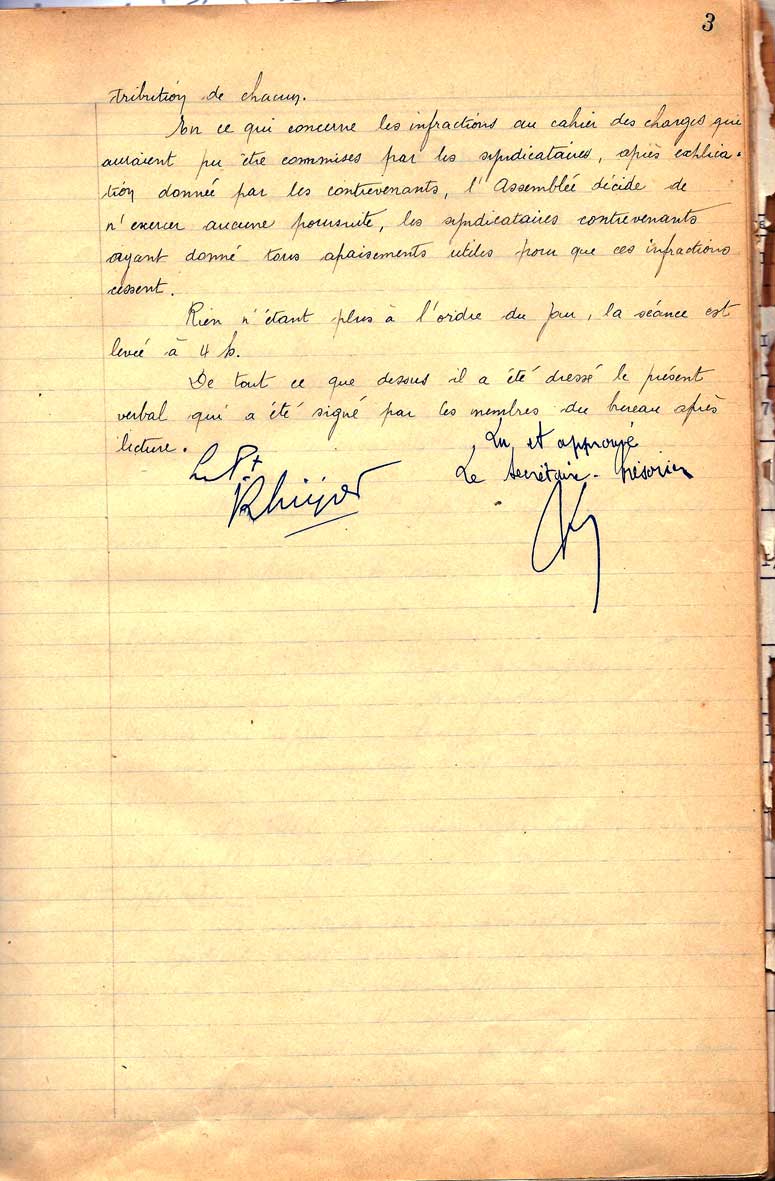 3
tribution de chacun.
En ce qui concerne les infractions au cahier des charges qui
auraient pu être commises par les syndicataires, après explica-
tion donnée par les contrevenants, l'Assemblée décide de
n'exercer aucune poursuite, les syndicataires contrevenants
ayant donné tous apaisements utiles pour que ces infractions
cessent.
Rien n'étant plus à l'ordre du jour, la séance est
levée à 4 h.
De tout ce que dessus il a été dressé le présent
verbal qui a été signé par les membres du bureau après
lecture.
Lu et approuvé
Le Pt
Le Secrétaire-Trésorier